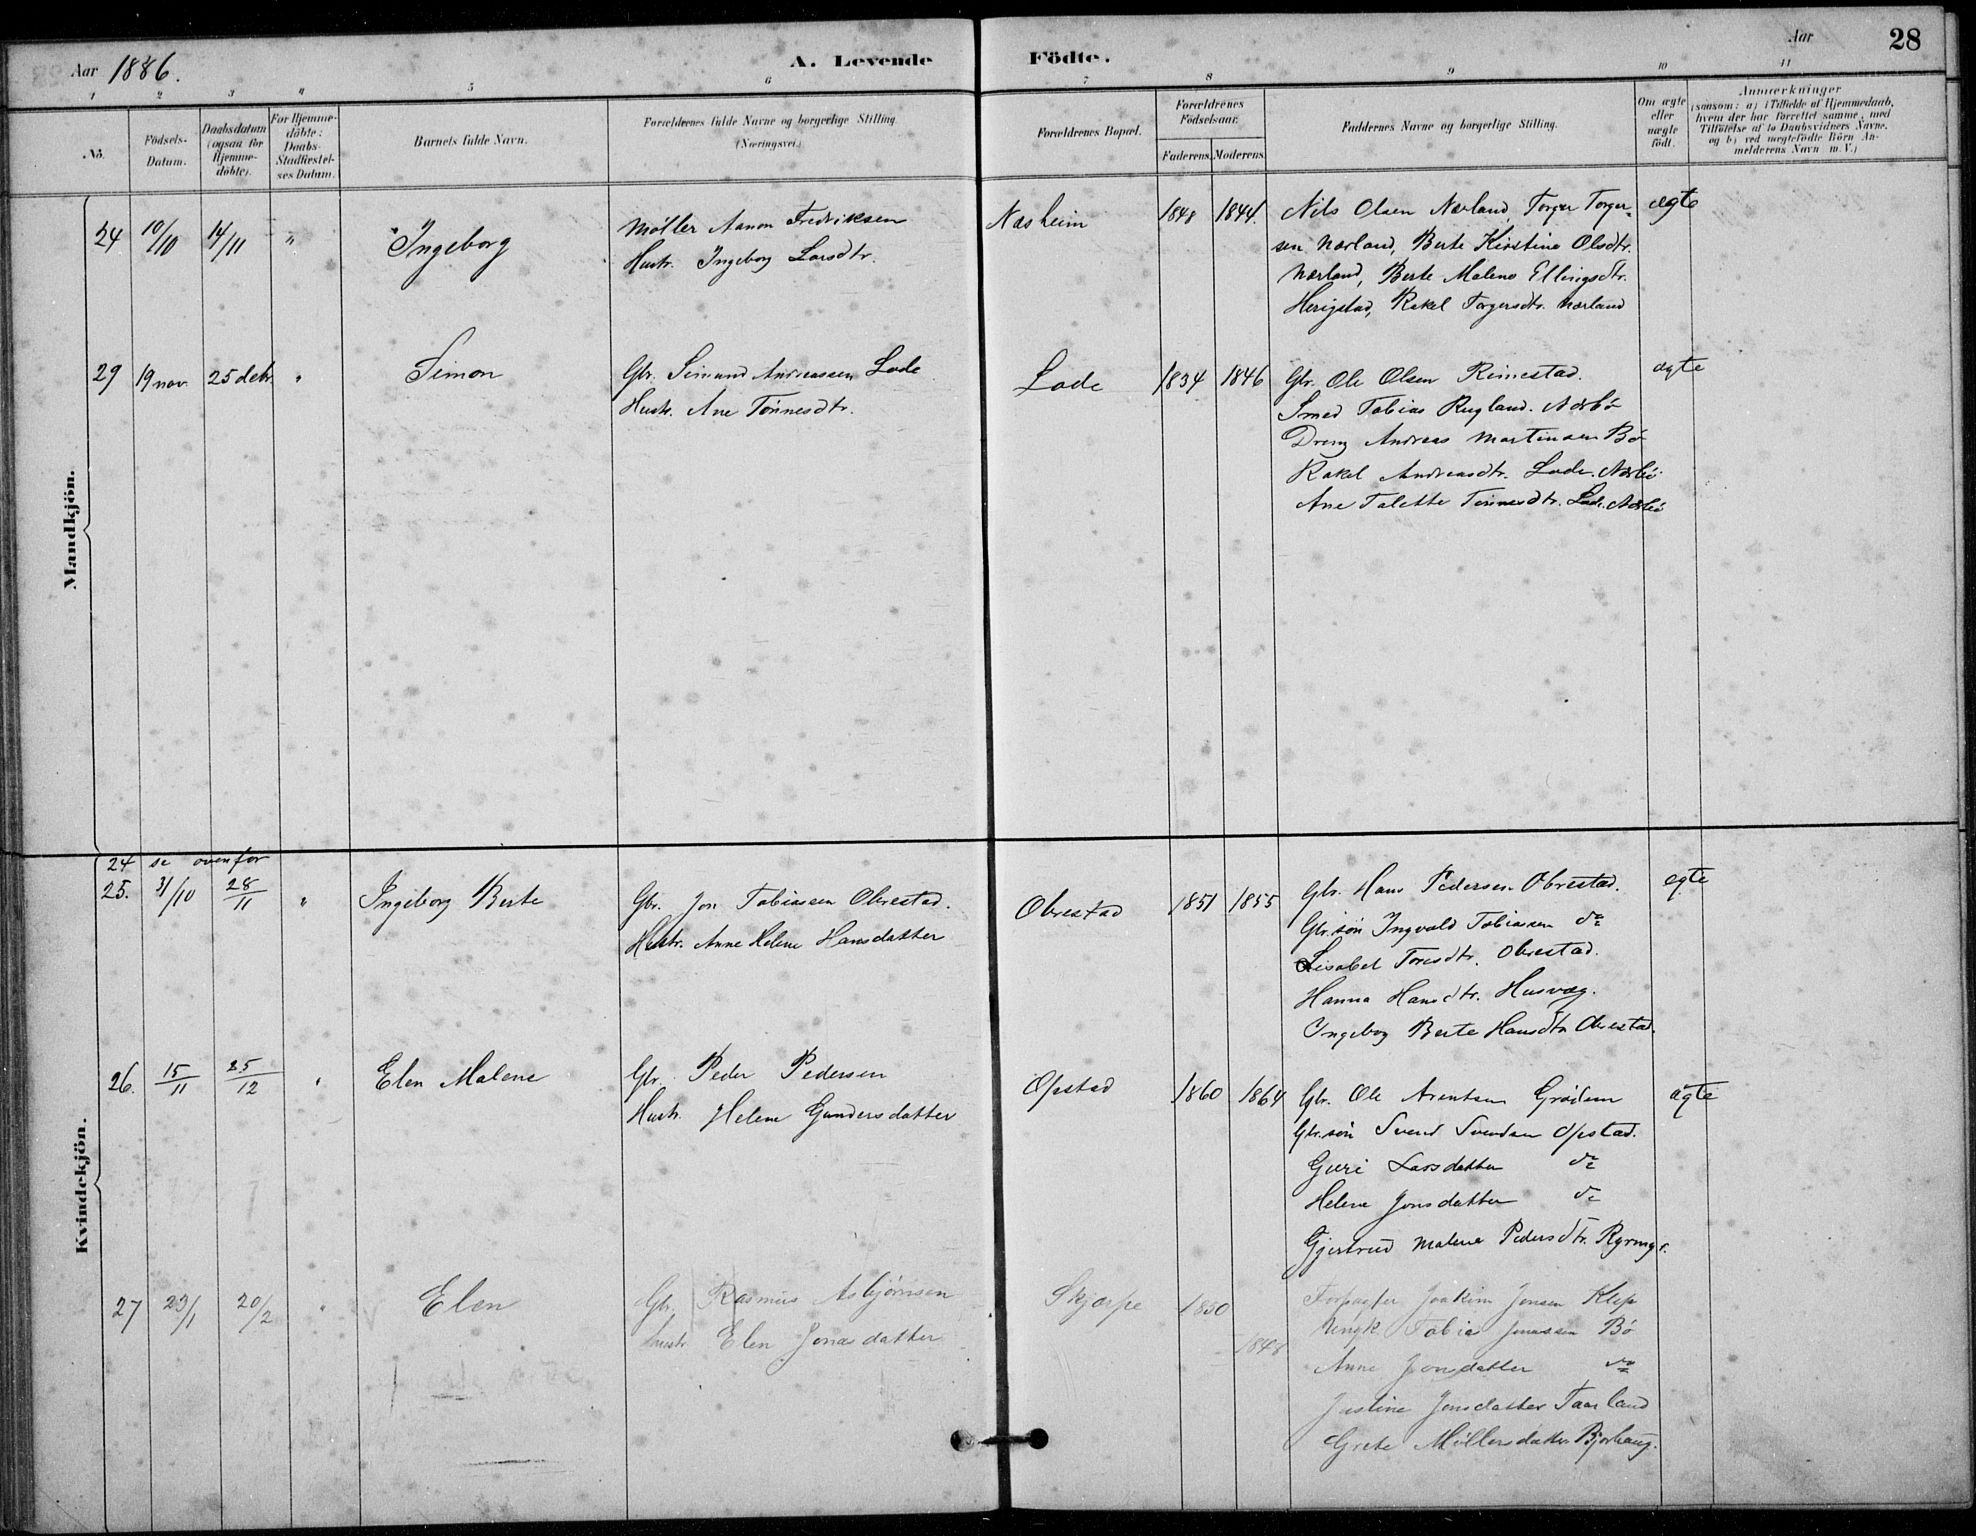 Aar 1886.
A. Levende Födte.
Aar
28
1 2 3 4 5 6 7 8 9 10 11
No.
Födsels-Datum.
Daabsdatum (ogsaa for Hjemme-döbte).
For Hjemme-döbte: Daabs-Stadfæstel-ses Datum.
Barnets fulde Navn.
Forældrenes fulde Navne og borgerlige Stilling (Næringsvei.)
Forældrenes Bopæl.
Forældrenes Födselsaar.
Faderens. Moderens.
Faddernes Navne og borgerlige Stilling.
Om ægte eller uægte födt.
Anmærkninger
(saasom: a) i Tilfælde af Hjemmedaab,
hvem der har forrettet samme, med
Tilföielse af to Daabsvidners Navne.
og b) ved uægtefödte Börn An-
melderens Navn m. V.)
Mandkjön.
24 10/10 14/11 " Ingeborg
Møller Aanon Fredriksen
Hustr. Ingeborg Larsdtr.
Næsheim 1848 1844.
Nils Olsen Nærland, Torger Torger-
sen Nærland, Berte Kirstine Olsdtr.
Nærland, Berte Malene Ellingsdtr.
Herigstad, Rakel Torgersdtr. Nærland
ægte
29 19 nov. 25 debr. " Simon
Gbr. Simund Andreassen Lode
Hustr. Ane Tønnesdtr.
Lode 1834 1846
Gbr. Ole Olsen Rimestad.
Smed Tobias Rugland. Nærbø
Dreng Andreas Martinsen Bø
Rakel Andreasdtr. Lode. Nærbø
Ane Talette Tønnesdtr. Lode. Nærbø
ægte
Kvindekjön.
24 se ovenfor
25. 31/10 28/11 " Ingeborg Berte
Gbr. Jon Tobiassen Obrestad.
Hustr. Anne Helene Hansdatter
Obrestad 1851 1855
Gbr. Hans Pedersen Obrestad.
Gbr.søn Ingvald Tobiassen do
Lisabet Toresdtr. Obrestad.
Hanna Hansdtr. Husvæg.
Ingeborg Berte Hansdtr. Obrestad.
egte
26. 15/11 25/12 " Elen Malene
Gbr. Peder Pedersen
Hustr. Helene Gundersdatter
Opstad 1860 1864
Gbr. Ole Arentsen Grødem
Gbr.søn Svend Svendsen Opstad.
Guri Larsdatter do
Helene Jonsdatter do
Gjertrud Malene Pedersdtr.
ægte
27 23/1 20/2 " Elen
Gbr. Rasmus Asbjørnsen
Hustr. Elen Jonasdatter
Skjærpe 1850
1848
Forpagter Joakim Jonsen Klep
Ungk. Tobias Jonassen Bø
Anne Jonsdatter do
Justine Jonsdatter Taarland
Grete Møllersdatter Bjorhaug.